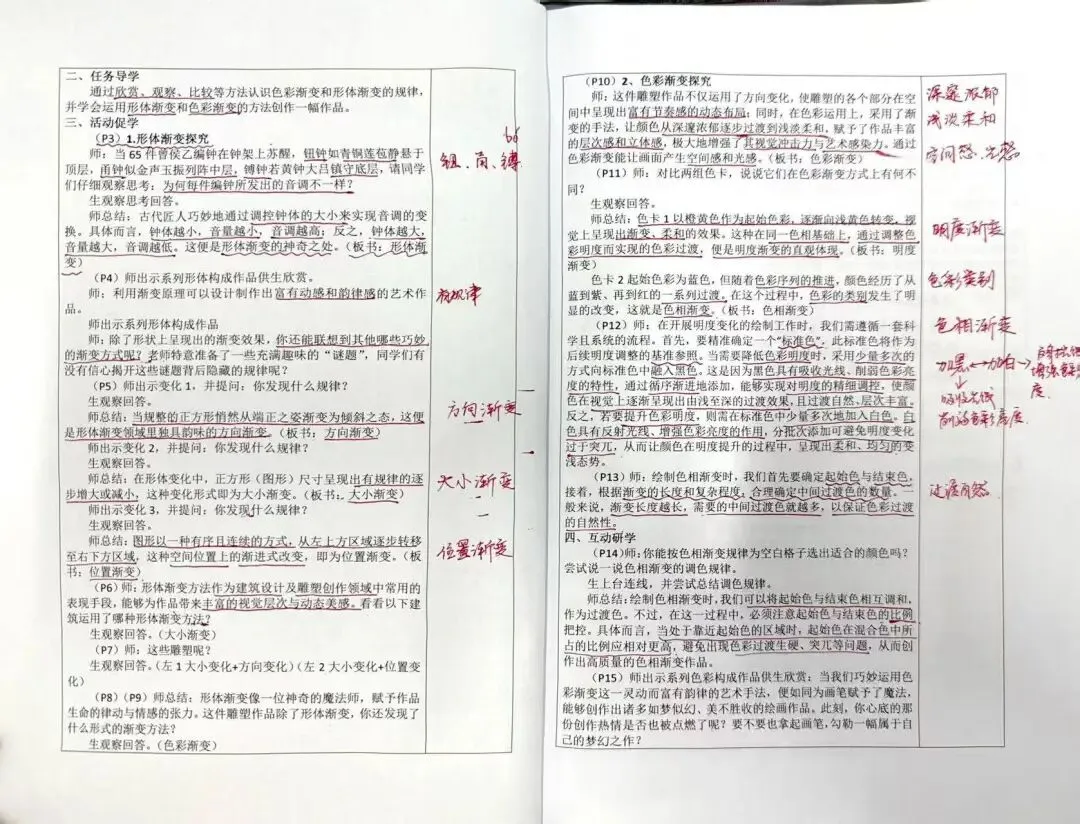 二、任务导学
通过欣赏、观察、比较等方法认识色彩渐变和形体渐变的规律，
并学会运用形体渐变和色彩渐变的方法创作一幅作品。
三、活动促学
（P3）1.形体渐变探究
师：当 65 件曾侯乙编钟在钟架上苏醒，钮钟如青铜莲苞静悬于
顶层，甬钟似金声玉振列阵中层，镈钟若黄钟大吕镇守底层，请同学
们仔细观察思考：为何每件编钟所发出的音调不一样？
生观察思考回答。
师总结：古代匠人巧妙地通过调控钟体的大小来实现音调的变
换。具体而言，钟体越小，音量越小，音调越高；反之，钟体越大，
音量越大，音调越低。这便是形体渐变的神奇之处。（板书：形体渐
变）
（P4）师出示系列形体构成作品供生欣赏。
师：利用渐变原理可以设计制作出富有动感和韵律感的艺术作
品。
师出示系列形体构成作品
师：除了形状上呈现出的渐变，你还能联想到其他哪些巧妙
的渐变方式呢？老师特意准备了一些充满趣味的“谜题”，同学们有
没有信心揭开这些谜题背后隐藏的规律呢？
（P5）师出示变化 1，并提问：你发现什么规律？
生观察回答。
师总结：当规整的正方形悄然从端正之姿渐变为倾斜之态，这便
是形体渐变领域里独具韵味的方向渐变。（板书：方向渐变）
师出示变化 2，并提问：你发现什么规律？
生观察回答。
师总结：在形体变化中，正方形（图形）尺寸呈现出有规律的逐
步增大或减小，这种变化形式即为大小渐变。（板书：大小渐变）
师出示变化 3，并提问：你发现什么规律？
生观察回答。
师总结：图形以一种有序且连续的方式，从左上方区域逐步转移
至右下方区域，这种空间位置上的渐进式改变，即为位置渐变。（板
书：位置渐变）
（P6）师：形体渐变方法作为建筑设计及雕塑创作领域中常用的
表现手段，能够为作品带来丰富的视觉层次与动态美感。看看以下建
筑运用了哪种形体渐变方法？
生观察回答。（大小渐变）
（P7）师：这些雕塑呢？
生观察回答。（左 1 大小变化+方向变化）（左 2 大小变化+位置变
化）
（P8）（P9）师总结：形体渐变像一位神奇的魔法师，赋予作品
生命的律动与情感的张力。这件雕塑作品除了形体渐变，你还发现了
什么形式的渐变方法？
生观察回答。（色彩渐变）
钮、甬、镈
有规律
方向渐变
大小渐变
位置渐变
（P10）2、色彩渐变探究
师：这件雕塑作品不仅运用了方向变化，使雕塑的各个部分在空
间中呈现出富有节奏感的动态布局；同时，在色彩运用上，采用了渐
变的手法，让颜色从深邃浓郁逐步过渡到浅淡柔和，赋予了作品丰富
的层次感和立体感，极大地增强了其视觉冲击力与艺术感染力。通过
色彩渐变能让画面产生空间感和光感。（板书：色彩渐变）
（P11）师：对比两组色卡，说说它们在色彩渐变方式上有何不
同？
生观察回答。
师总结：色卡 1 以橙黄色作为起始色彩，逐渐向浅黄色转变，视
觉上呈现出渐变、柔和的效果。这种在同一色相基础上，通过调整色
彩明度而实现的色彩过渡，便是明度渐变的直观体现。（板书：明度
渐变）
色卡 2 起始色彩为蓝色，但随着色彩序列的推进，颜色经历了从
蓝到紫、再到红的一系列过渡。在这个过程中，色彩的类别发生了明
显的改变，这就是色相渐变。（板书：色相渐变）
（P12）师：在开展明度变化的绘制工作时，我们需遵循一套科
学且系统的流程。首先，要精准确定一个“标准色”，此标准色将作为
后续明度调整的基准参照。当需要降低色彩明度时，采用少量多次的
方式向标准色中融入黑色。这是因为黑色具有吸收光线、削弱色彩亮
度的特性，通过循序渐进地添加，能够实现对明度的精细调控，使颜
色在视觉上逐渐呈现出由浅至深的过渡效果，且过渡自然、层次丰富。
反之，若要提升色彩明度，则需在标准色中少量多次地加入白色。白
色具有反射光线、增强色彩亮度的作用，分批次添加可避免明度变化
过于突兀，从而让颜色在明度提升的过程中，呈现出柔和、均匀的变
浅态势。
（P13）师：绘制色相渐变时，我们首先要确定起始色与结束色，
接着，根据渐变的长度和复杂程度，合理确定中间过渡色的数量。一
般来说，渐变长度越长，需要的中间过渡色就越多，以保证色彩过渡
的自然性。
四、互动研学
（P14）师：你能按色相渐变规律为空白格子选出适合的颜色吗？
尝试说一说色相渐变的调色规律。
生上台连线，并尝试总结调色规律。
师总结：绘制色相渐变时，我们可以将起始色与结束色相互调和，
作为过渡色。不过，在这一过程中，必须注意起始色与结束色的比例
把控。具体而言，当处于靠近起始色的区域时，起始色在混合色中所
占的比例应相对更高，避免出现色彩过渡生硬、突兀等问题，从而创
作出高质量的色相渐变作品。
（P15）师出示系列色彩构成作品供生欣赏：当我们巧妙运用色
彩渐变这一灵动而富有韵律的艺术手法，便如同为画笔赋予了魔法，
能够创作出诸多如梦似幻、美不胜收的绘画作品。此刻，你心底的那
份创作热情是否也被点燃了呢？要不要也拿起画笔，勾勒一幅属于自
己的梦幻之作？
深邃浓郁
浅淡柔和
空间感、光感
明度渐变
色彩类别
色相渐变
加黑 加白
过渡自然